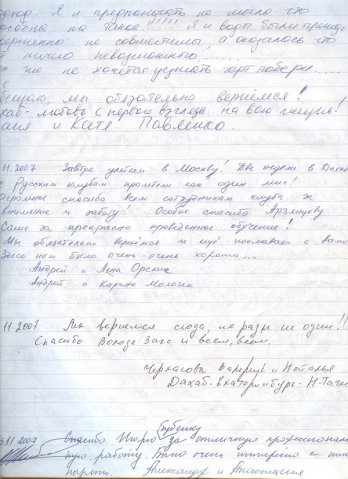 Я и предположить не могла что
способна на такое!!!!!! Я и вода были прежде
совершенно не совместимы, а оказалось это
ничего невозможного.....
же не хочется уезжать чорт побери.....
обещаю, мы обязательно вернёмся!
Дахаб - любовь с первого взгляда на всю жизнь!
и Катя Павленко.
11.2007 Завтра улетаем в Москву! Две недели в Дахабе
с Русским клубом пролетели как один миг!
Огромное спасибо всем сотрудникам клуба за
внимание и работу! Особое спасибо Арзамцову
Саше за прекрасно проведенное обучение!
Мы обязательно вернёмся и ещё поплаваем с вами
Здесь нам было очень-очень хорошо...
Андрей и Лена Орские
Андрей и Карина Мологик
11.2007 Мы вернемся сюда, и не разы не один!!!
Спасибо Володе Заке и всем, всем.
Черкасовы Валерий и Наталья
Дахаб-Екатеринбург-Н-Тагил
3.11.2007 Спасибо Игорю Губенку за отличную профессиональ
ную работу. Было очень интересно с ним
нырять. Александр и Анастасия